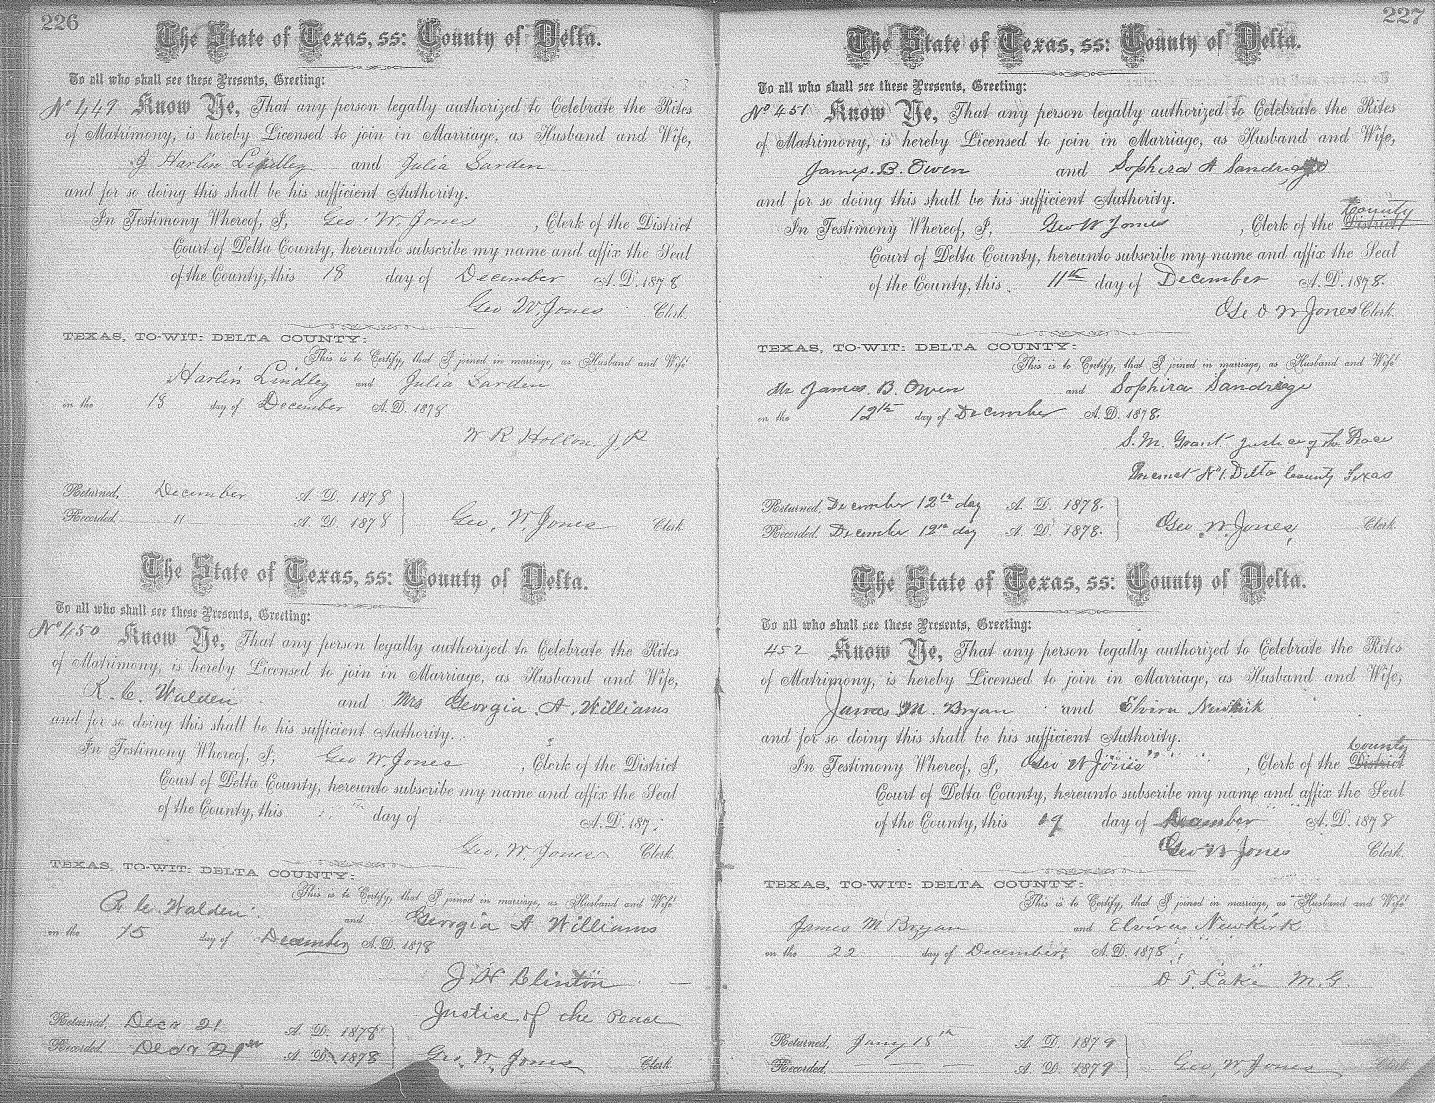 226
The State of Texas, ss: County of Delta.
To all who shall see these Presents, Greeting:
No 449 Know Ye, That any person legally authorized to Celebrate the Rites
of Matrimony, is hereby Licensed to join in Marriage, as Husband and Wife,
J Harlin Lindley and Julia Darden
and for so doing this shall be his sufficient Authority.
In Testimony Whereof, I, Geo. W. Jones, Clerk of the District
Court of Delta County, hereunto subscribe my name and affix the Seal
of the County, this 18 day of December A. D. 1878
Geo W. Jones Clerk.
TEXAS, TO-WIT: DELTA COUNTY:
This is to Certify, that I joined in marriage, as Husband and Wife
Harlin Lindley and Julia Darden
on the 18 day of December A. D. 1878
W R Hollon J. P.
Returned, December A. D. 1878
Recorded " A. D. 1878 Geo, W. Jones Clerk
The State of Texas, ss: County of Delta.
To all who shall see these Presents, Greeting:
No 450 Know Ye, That any person legally authorized to Celebrate the Rites
of Matrimony, is hereby Licensed to join in Marriage, as Husband and Wife,
R. C. Walden and Mrs Georgia A. Williams
and for so doing this shall be his sufficient Authority.
In Testimony Whereof, I, Geo W. Jones, Clerk of the District
Court of Delta County, hereunto subscribe my name and affix the Seal
of the County, this day of A. D. 187
Geo. W. Jones Clerk.
TEXAS, TO-WIT: DELTA COUNTY:
This is to Certify, that I joined in marriage, as Husband and Wife
R. C. Walden and Georgia A Williams
on the 15 day of December A. D. 1878
J. H Clinton
Justice of the Peace
Returned, Dec 21 A. D. 1878
Recorded, A. D. 1878 Geo. W. Jones Clerk
227
The State of Texas, ss: County of Delta.
To all who shall see these Presents, Greeting:
No 451 Know Ye, That any person legally authorized to Celebrate the Rites
of Matrimony, is hereby Licensed to join in Marriage, as Husband and Wife,
James. B. Owen and Sophira A Sandridge
and for so doing this shall be his sufficient Authority.
County
In Testimony Whereof, I, Geo W Jones, Clerk of the District
Court of Delta County, hereunto subscribe my name and affix the Seal
of the County, this 11th day of December A. D. 1878.
Geo W Jones Clerk.
TEXAS, TO-WIT: DELTA COUNTY:
This is to Certify, that I joined in marriage, as Husband and Wife
Mr James. B. Owen and Sophira Sandridge
on the 12th day of December A. D. 1878.
S. M. Grant Justice of the Peace
Precinct No 1. Delta County Texas
Returned, December 12th day A. D. 1878.
Recorded, December 12th day A. D. 1878. Geo. W. Jones, Clerk
The State of Texas, ss: County of Delta.
To all who shall see these Presents, Greeting:
452 Know Ye, That any person legally authorized to Celebrate the Rites
of Matrimony, is hereby Licensed to join in Marriage, as Husband and Wife,
James M. Bryan and Elvira Newkirk
and for so doing this shall be his sufficient Authority.
County
In Testimony Whereof, I, Geo W Jones, Clerk of the District
Court of Delta County, hereunto subscribe my name and affix the Seal
of the County, this 19 day of December A. D. 1878
Geo W Jones Clerk.
TEXAS, TO-WIT: DELTA COUNTY:
This is to Certify, that I joined in marriage, as Husband and Wife
James M Bryan and Elvira Newkirk
on the 22 day of December A. D. 1878
D. T. Lake M. G.
Returned, Jany 18th A. D. 1879
Recorded, A. D. 1879 Geo, W. Jones Clerk